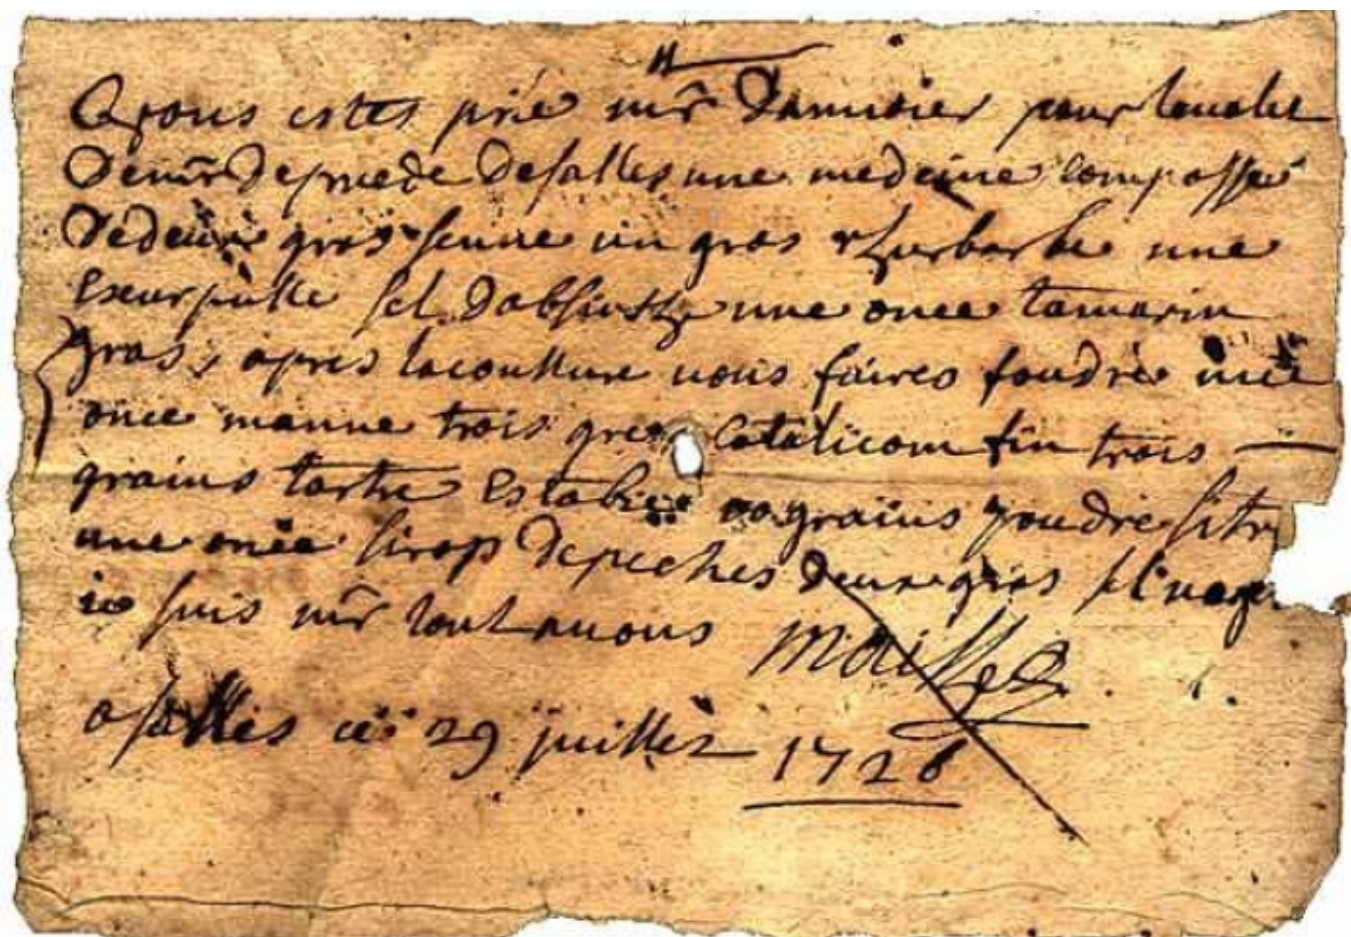 Vous estes prié mr Damoier pour lavalet
Demr Depruede Desalles une medecine composseé
Dedeux gros senne un gros rhurbarbe une
Escurpulle sel Dabsinthe une once tamarin
gras, apres lacoulture vous faires foudre une
once manne trois gros Catalicom fin trois
grains tartre Estabié 20 grains poudre
une once sirop Depeches Deux gros sel
ie suis mr tout avous
a salles ce 29 juillet 1726